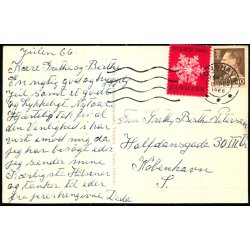 Julen 66
Kære Grethe og Berthe
En rigtig god og hyggelig
Jul samt et godt
og lykkeligt Nytaar.
Hjertelig tak for al
den Venlighed i har
vist imod mig naar
jeg har besøgt eder
jeg sender mine
Kærligste Hilsener
og tanker til eder
fra
JULEN 1966
DANMARK
Berthe Petersen
Halfdansgade 30
København
S.